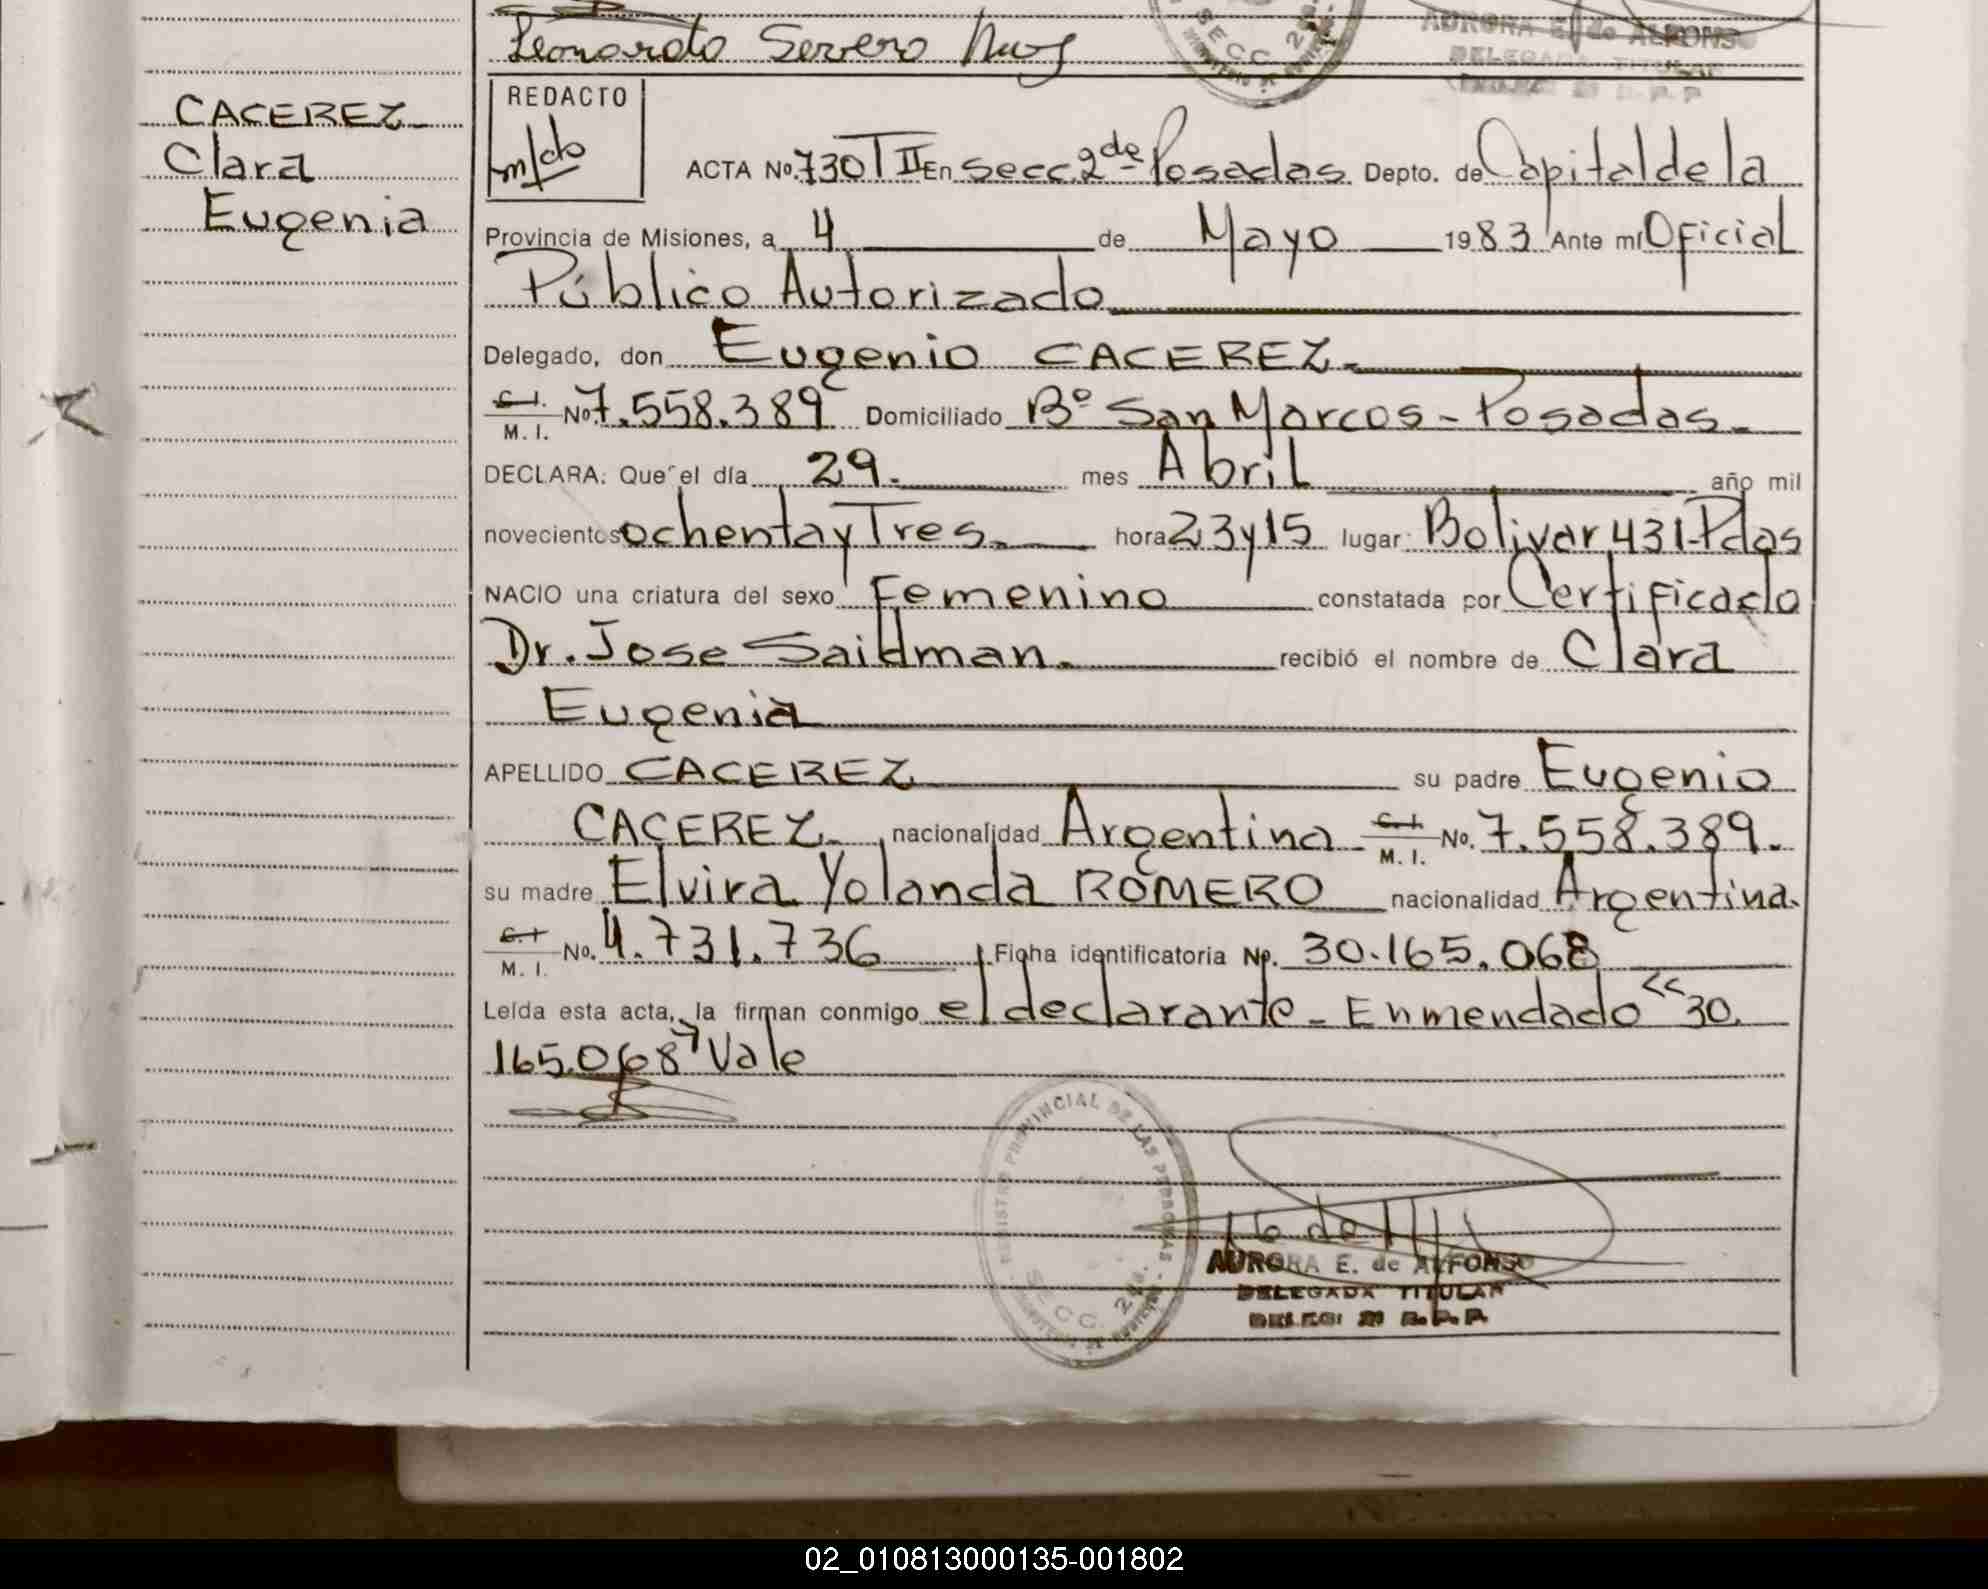 Leonardo Severo
SECC. 2da.
AURORA E. de ALFONSO
DELEGADA TITULAR
CACEREZ
Clara
Eugenia
REDACTO
ACTA No. 730 T II En Secc. 2da Posadas Depto. de Capital de la
Provincia de Misiones, a 4 de Mayo 1983 Ante mí Oficial
Público Autorizado
Delegado, don Eugenio CACEREZ.
C.I. M.I. No 7.558.389 Domiciliado Bº San Marcos - Posadas.
DECLARA: Que el día 29. mes Abril año mil
novecientos ochenta y Tres. hora 23 y 15 lugar: Bolivar 431-Pdas
NACIO una criatura del sexo Femenino constatada por Certificado
Dr. Jose Saidman. recibió el nombre de Clara
Eugenia
APELLIDO CACEREZ su padre Eugenio
CACEREZ. nacionalidad Argentina C.I. M.I. No. 7.558.389.
su madre Elvira Yolanda ROMERO nacionalidad Argentina.
C.I. M.I. No. 4.731.736 Ficha identificatoria No. 30.165.068
Leída esta acta, la firman conmigo el declarante - Enmendado "30.
165.068" Vale
REGISTRO PROVINCIAL DE LAS PERSONAS
SECC. 2da.
AURORA E. de ALFONSO
DELEGADA TITULAR
02_010813000135-001802